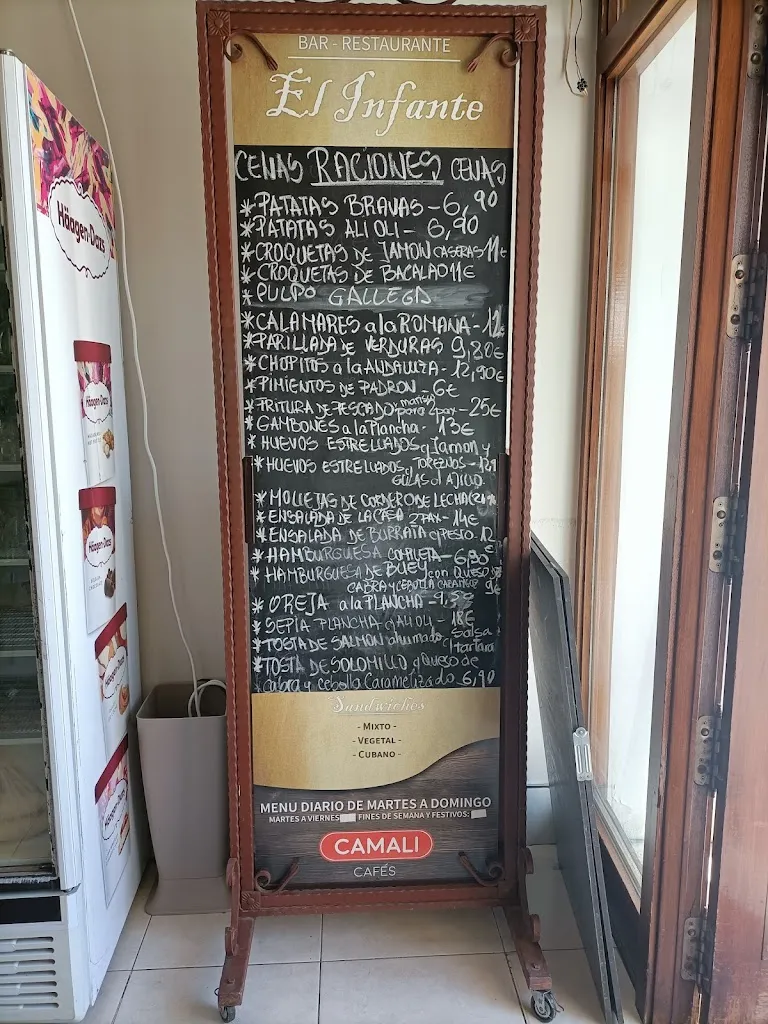 BAR - RESTAURANTE
El Infante
CENAS RACIONES CENAS
* PATATAS BRAVAS - 6,90
* PATATAS ALI OLI - 6,90
* CROQUETAS DE JAMON CASERAS 11€
* CROQUETAS DE BACALAO 11€
* PULPO GALLEGA
* CALAMARES a la ROMANA - 12
* PARILLADA DE VERDURAS 9,20€
* CHOPITOS a la ANDALUZA - 12,90€
* PIMIENTOS DE PADRON - 6€
* FRITURA DE PESCADO para 2 pax - 25€
* GAMBONES a la Plancha - 13€
* HUEVOS ESTRELLADOS c/ Jamon y
* HUEVOS ESTRELLADOS c/ TOREZNOS -
GULAS al AJILLO
* MOLLEJAS DE CORDERO DE LECHAL
* ENSALADA DE LA CASA 2 PAX - 14€
* ENSALADA DE BURRATA c/ PESTO - 12
* HAMBURGUESA COMPLETA - 6,90€
* HAMBURGUESA DE BUEY con QUESO DE
CABRA y CEBOLLA 9€
* OREJA a la PLANCHA - 9,50
* SEPIA PLANCHA c/ ALI OLI - 18€
* TOSTA DE SALMON ahumado c/ Salsa
tartara
* TOSTA DE SOLOMILLO y Queso de
Cabra y cebolla Caramelizado - 6,90
Sandwiches
- MIXTO -
- VEGETAL -
- CUBANO -
MENU DIARIO DE MARTES A DOMINGO
MARTES A VIERNES FINES DE SEMANA Y FESTIVOS:
CAMALI
CAFÉS
Häagen-Dazs
Häagen-Dazs
Häagen-Dazs
Häagen-Dazs
Häagen-Dazs